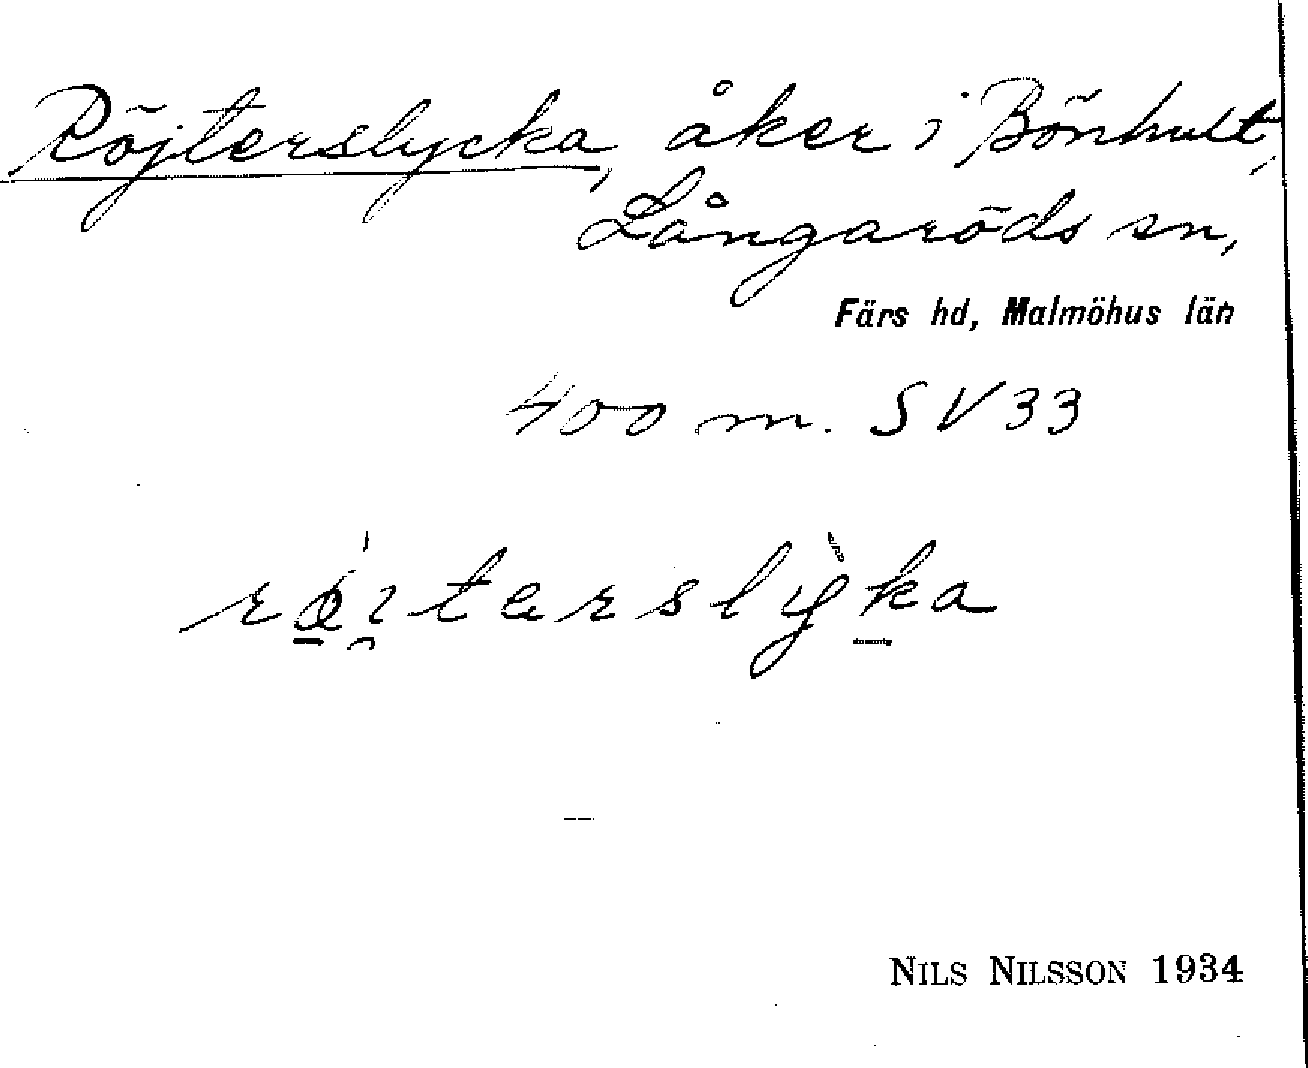 Röjterslycka, åker i Bönhult,
Långaröds sn,
Färs hd, Malmöhus län
400 m. SV 33
röiterslyka
NILS NILSSON 1934